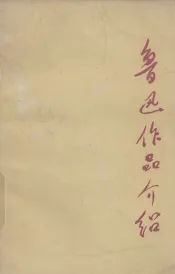 鲁迅作品介绍